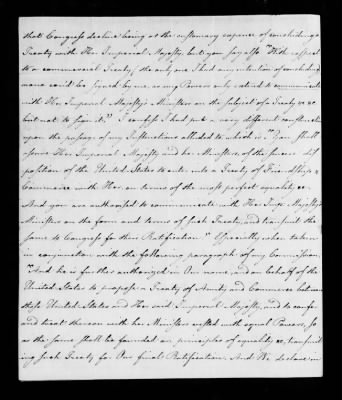 that Congress decline being at the customary expence of concluding a
Treaty with Her Imperial Majesty, but you say also "With respect
to a commercial Treaty, the only one I had any intention of concluding
none could be signed by me, as my Powers only extend to communicate
with Her Imperial Majesty's Ministers on the subject of a Treaty &c &c
but not to sign it." I confess I had put a very different construction
upon the passage of my Instructions alluded to which is "You shall
assure Her Imperial Majesty and her Ministers of the sincere dis
position of the United States to enter into a Treaty of Friendship &
Commerce with Her on terms of the most perfect equality &c.
And you are authorised to communicate with Her Imp: Majesty's
Ministers on the form and terms of such Treaty, and transmit the
same to Congress for their Ratification." Especially when taken
in conjunction with the following paragraph of my Commission,
"And he is further authorised in Our name, and on behalf of the
United States to propose a Treaty of Amity and Commerce between
these United States and Her said Imperial Majesty, and to confer
and treat thereon with her Ministers vested with equal Powers, so
as the same shall be founded on principles of equality &c, transmitt
ing such Treaty for Our final Ratification. And We declare in